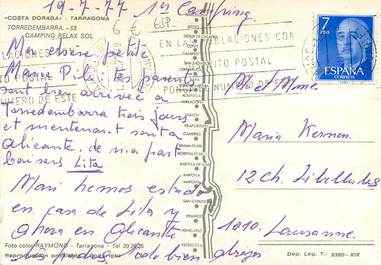 19-7-77 1er Camping
"COSTA DORADA" - TARRAGONA
TORREDEMBARRA.- 53
CAMPING RELAX SOL
6 €
EN LA POBLACIONES CON
DISTRITO POSTAL
PONGA EL NUMERO DE ESTE
NUMERO DE ESTE
7
PTAS
ESPAÑA
CORREOS
Ma chère petite
Marie Pili: tes parents
sont bien arrivés à
Torredembarra trois jours
et maintenant sont a
Alicante, de ma part
baisers Lita
Mari hemos estado
en casa de Lita y
ahora en Alicante
todo bien
M et Mme.
Maria
12 Ch. Libellules
1010. Lausanne.
Foto color RAYMOND - Tarragona - Tel.
Reproducción prohibida
Dep. Leg. T.- 2360 - XIX